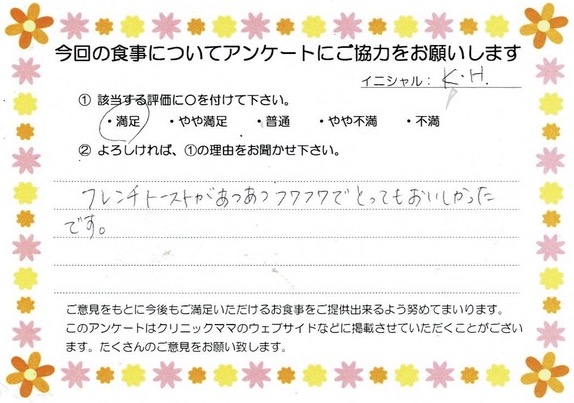 今回の食事についてアンケートにご協力をお願いします
イニシャル： K・H.
① 該当する評価に○を付けて下さい。
・満足 ・やや満足 ・普通 ・やや不満 ・不満
② よろしければ、①の理由をお聞かせ下さい。
フレンチトーストがあつあつフワフワでとってもおいしかった
です。
ご意見をもとに今後もご満足いただけるお食事をご提供出来るよう努めてまいります。
このアンケートはクリニックママのウェブサイドなどに掲載させていただくことがござい
ます。たくさんのご意見をお願い致します。